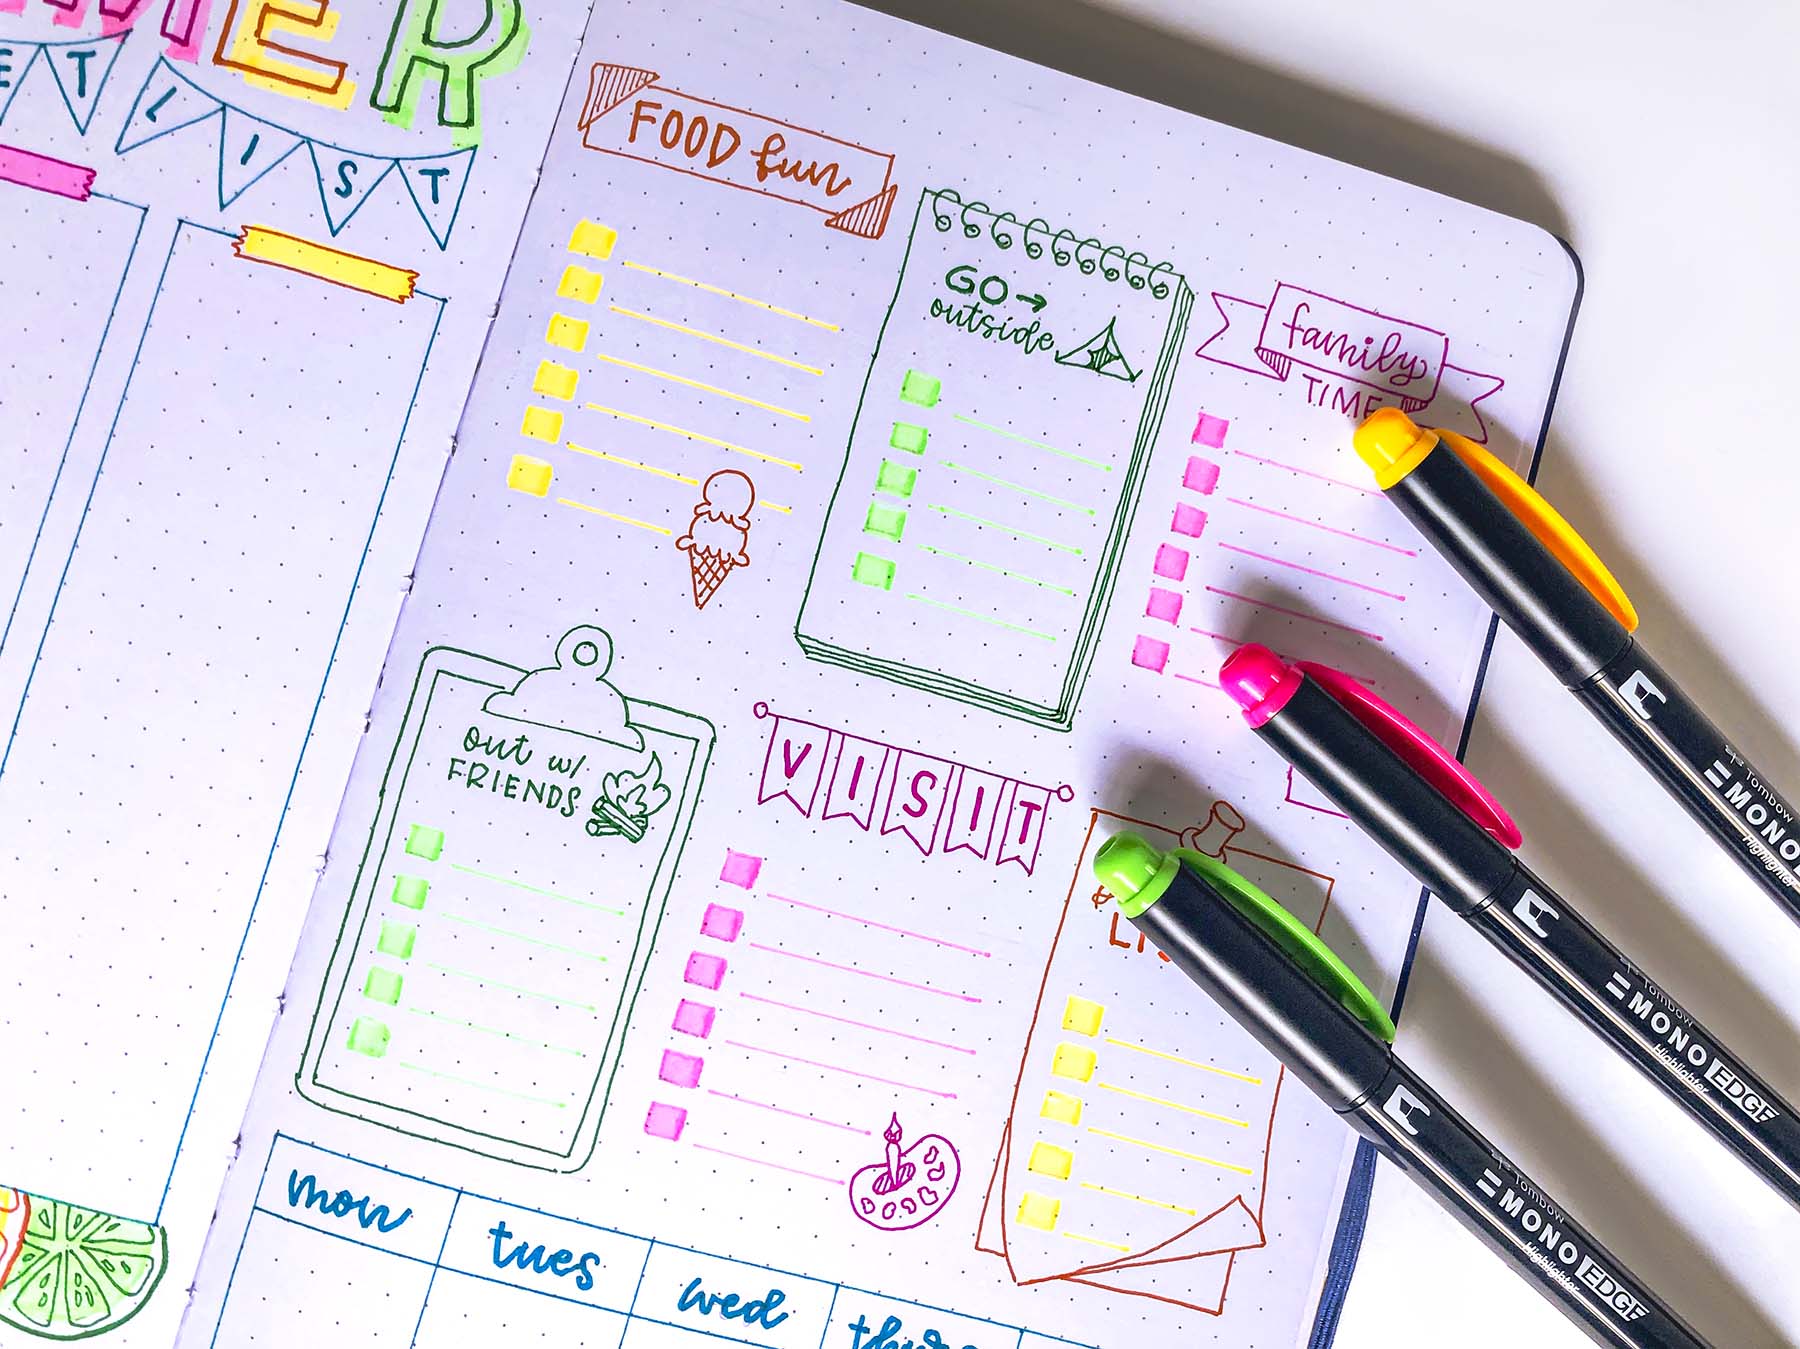 MER
ET LIST
FOOD fun
GO →
outside
family
TIME
out w/
FRIENDS
VISIT
LIS
mon
tues
wed
Tombow
MONO
Highlighter
Tombow
MONO EDGE
Highlighter
Tombow
MONO EDGE
Highlighter